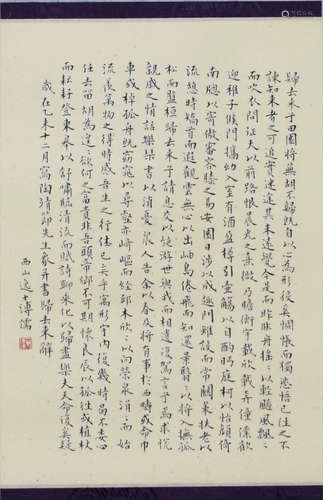 歸去來兮田園將蕪胡不歸既自以心為形役奚惆悵而獨悲悟已往之不
諫知來者之可追實迷途其未遠覺今是而昨非舟搖〻以輕颺風飄〻
而吹衣問征夫以前路恨晨光之熹微乃瞻衡宇載欣載奔僮僕歡
迎稚子候門攜幼入室有酒盈樽引壺觴以自酌眄庭柯以怡顏倚
南牕以寄傲審容膝之易安園日涉以成趣門雖設而常關策扶老以
流憩時矯首而遐觀雲無心以出岫鳥倦飛而知還景翳〻以將入撫孤
松而盤桓歸去來兮請息交以絕游世與我而相違復駕言兮焉求悅
親戚之情話樂琴書以消憂農人告余以春及將有事於西疇或命巾
車或棹孤舟既窈窕以尋壑亦崎嶇而經邱木欣〻以向榮泉涓〻而始
流羨萬物之得時感吾生之行休已矣乎寓形宇內復幾時曷不委心
任去留胡為遑〻欲何之富貴非吾願帝鄉不可期懷良辰以孤往或植杖
而耘耔登東皋以舒嘯臨清流而賦詩聊乘化以歸盡樂夫天命復奚疑
歲在乙未十二月寫陶靖節先生象并書歸去來辭
西山逸士溥儒